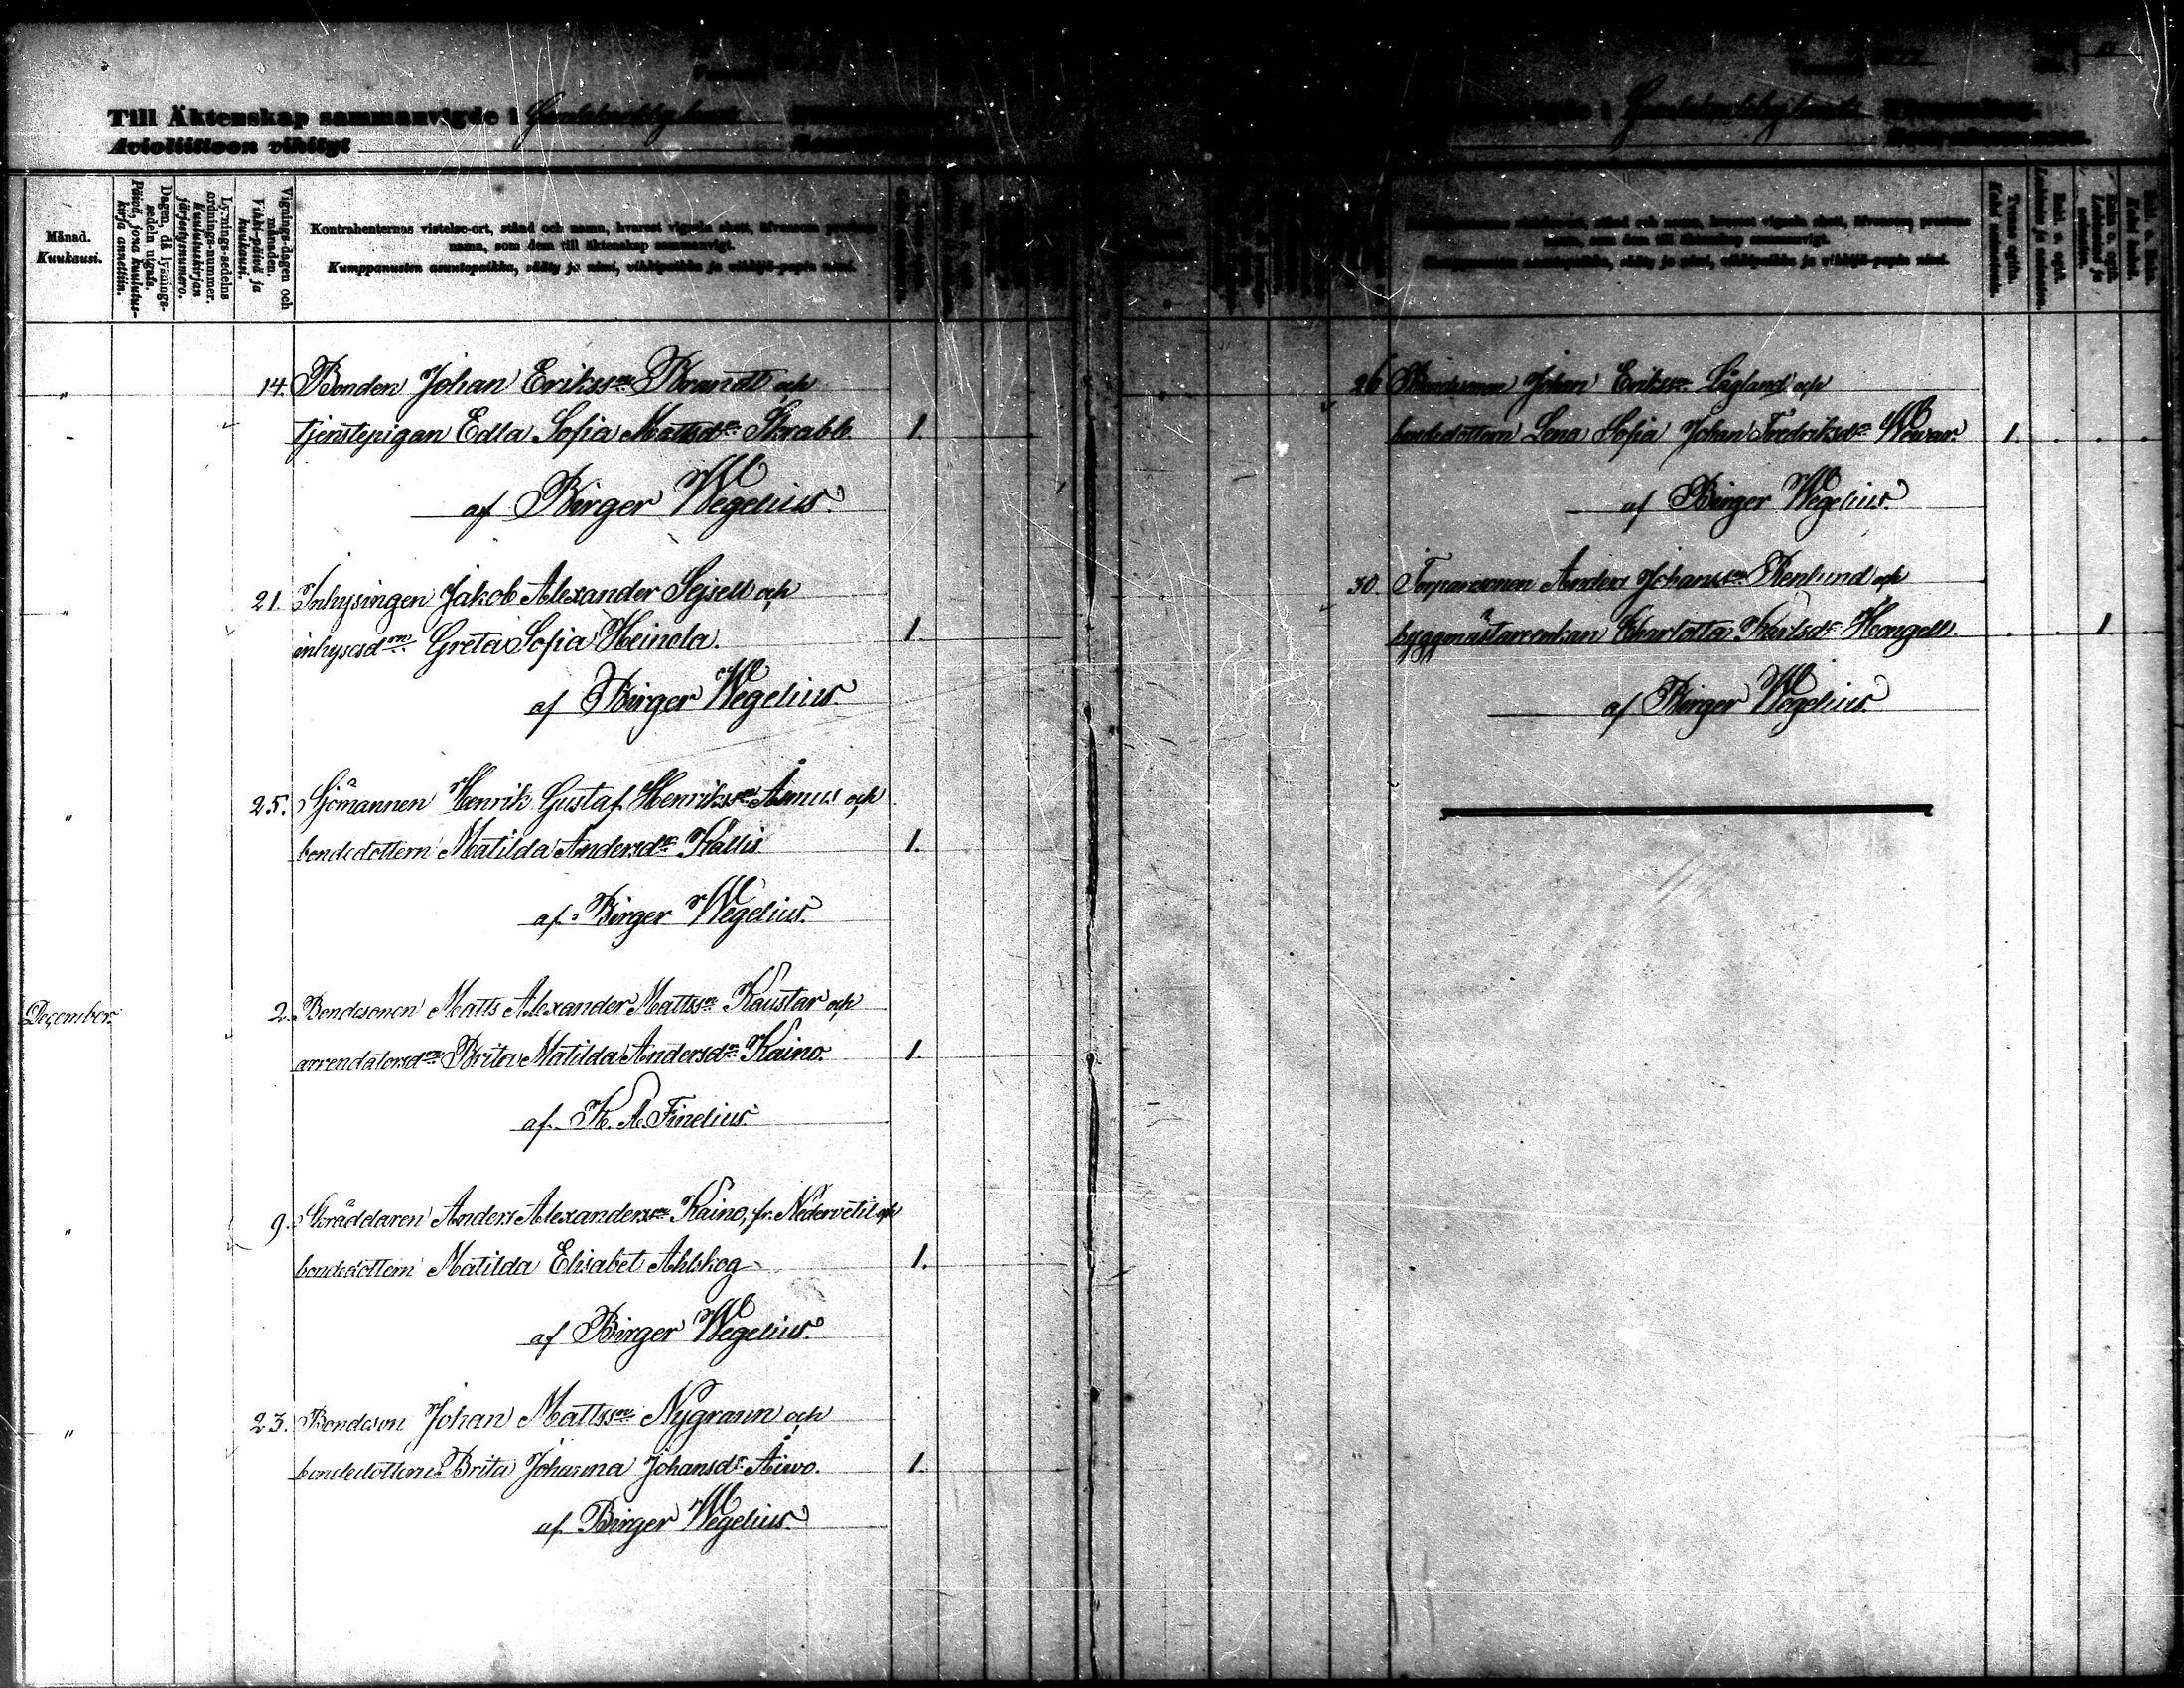 Till Äktenskap sammanvigde i Gamlakarleby
Avioliittoon vihityt
Månad.
Kuukausi.
Dagen, då lysnings-sedeln utgafs.
Päivä, jona kuulutus-kirja annettiin.
Lysnings-sedelns ordnings-nummer.
Kuulutuskirjan järjestysnumero.
Vignings-dagen och månaden.
Vihki-päivä ja kuukausi.
Kontrahenternas vistelse-ort, stånd och namn, hvarest vigseln skett, äfvensom prestens
namn, som dem till äktenskap sammanvigt.
Kumppanusten asuntopaikka, sääty ja nimi, vihkipaikka ja vihkijä-papin nimi.
" 14. Bonden Johan Erikssn Brandt och
tjenstepigan Edla Sofia Mattsdr Skrabb. 1.
af Birger Wegelius.
" 21. Inhysingen Jakob Alexander Sejsell och
inhysesdrn Greta Sofia Heinola. 1
af Birger Wegelius.
" 25. Sjömannen Henrik Gustaf Henrikssn Åsmus och
bondedottern Matilda Andersdr Källis 1.
af Birger Wegelius.
December. 2. Bondesonen Matts Alexander Mattssn Kaustar och
arrendatorsdrn Brita Matilda Andersdr Kaino. 1.
af K. A. Finelius.
" 9. Skräddaren Anders Alexanderssn Kaino, fr. Nedervetil och
bondedottern Matilda Elisabet Ahlskog 1.
af Birger Wegelius.
" 23. Bondeson Johan Mattssn Nygrann och
bondedottern Brita Johanna Johansdr Åiwo. 1.
af Birger Wegelius.
Gamlakarleby
Kontrahenternas vistelse-ort, stånd och namn, hvarest vigseln skett, äfvensom prestens
namn, som dem till äktenskap sammanvigt.
Kumppanusten asuntopaikka, sääty ja nimi, vihkipaikka ja vihkijä-papin nimi.
26 Bondesonen Johan Erikssn Lågland och
bondedottern Lena Sofia Johan Fredriksdr Wewar. 1. . . .
af Birger Wegelius.
30. Torparesonen Anders Johanssn Renlund och
byggmästareenkan Charlotta Karlsdr Hongell. . . 1
af Birger Wegelius.